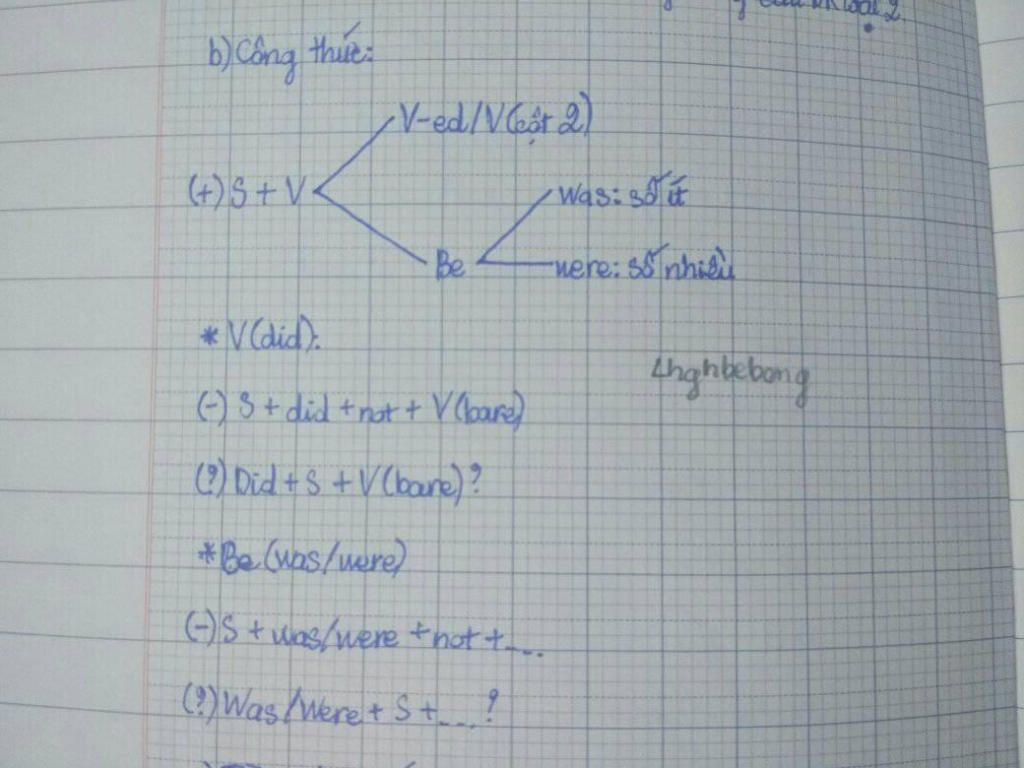 b) Công thức:
V-ed/V(cột 2)
(+) S + V
Was: số ít
Be
were: số nhiều
* V(did):
Lhghbebong
(-) S + did + not + V(bare)
(?) Did + S + V(bare)?
* Be (was/were)
(-) S + was/were + not + ....
(?) Was/Were + S + ....?